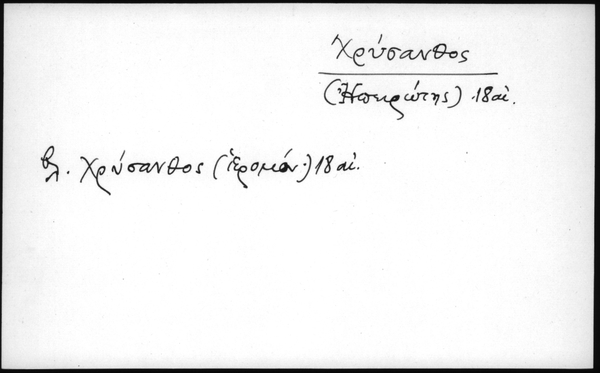 Χρύσανθος
(Ἠπειρώτης) 18 αἰ.
βλ. Χρύσανθος (ἱερομόν.) 18 αἰ.